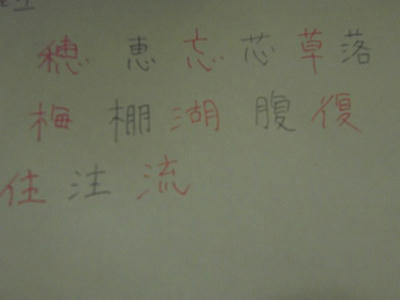 穂 恵 忘 芯 草 落
梅 棚 湖 腹 復
住 注 流